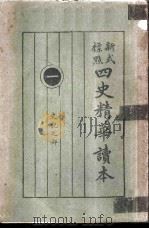 新式標點
四史精華讀本
一